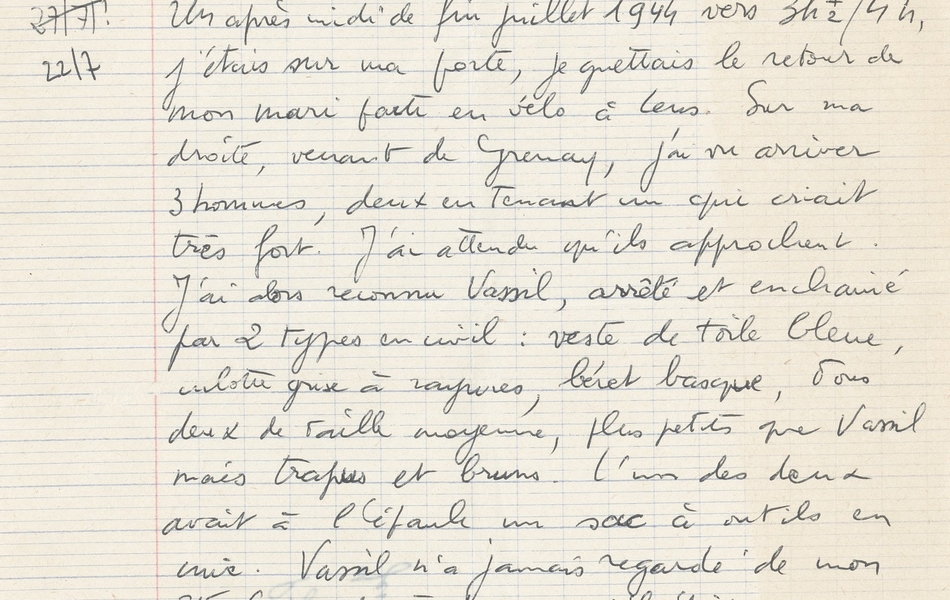 Un après midi de fin juillet 1944 vers 3h½/4h,
22/7
j'étais sur ma porte, je guettais le retour de
mon mari parti en vélo à Lens. Sur ma
droite, venant de Grenay, j'ai vu arriver
3 hommes, deux en tenant un qui criait
très fort. J'ai attendu qu'ils approchent.
J'ai alors reconnu Vassil, arrêté et enchaîné
par 2 types en civil : veste de toile bleue,
culotte grise à rayures, béret basque, Tous
deux de taille moyenne, plus petits que Vassil
mais trapus et bruns. L'un des deux
avait à l'épaule un sac à outils en
cuir. Vassil n'a jamais regardé de mon